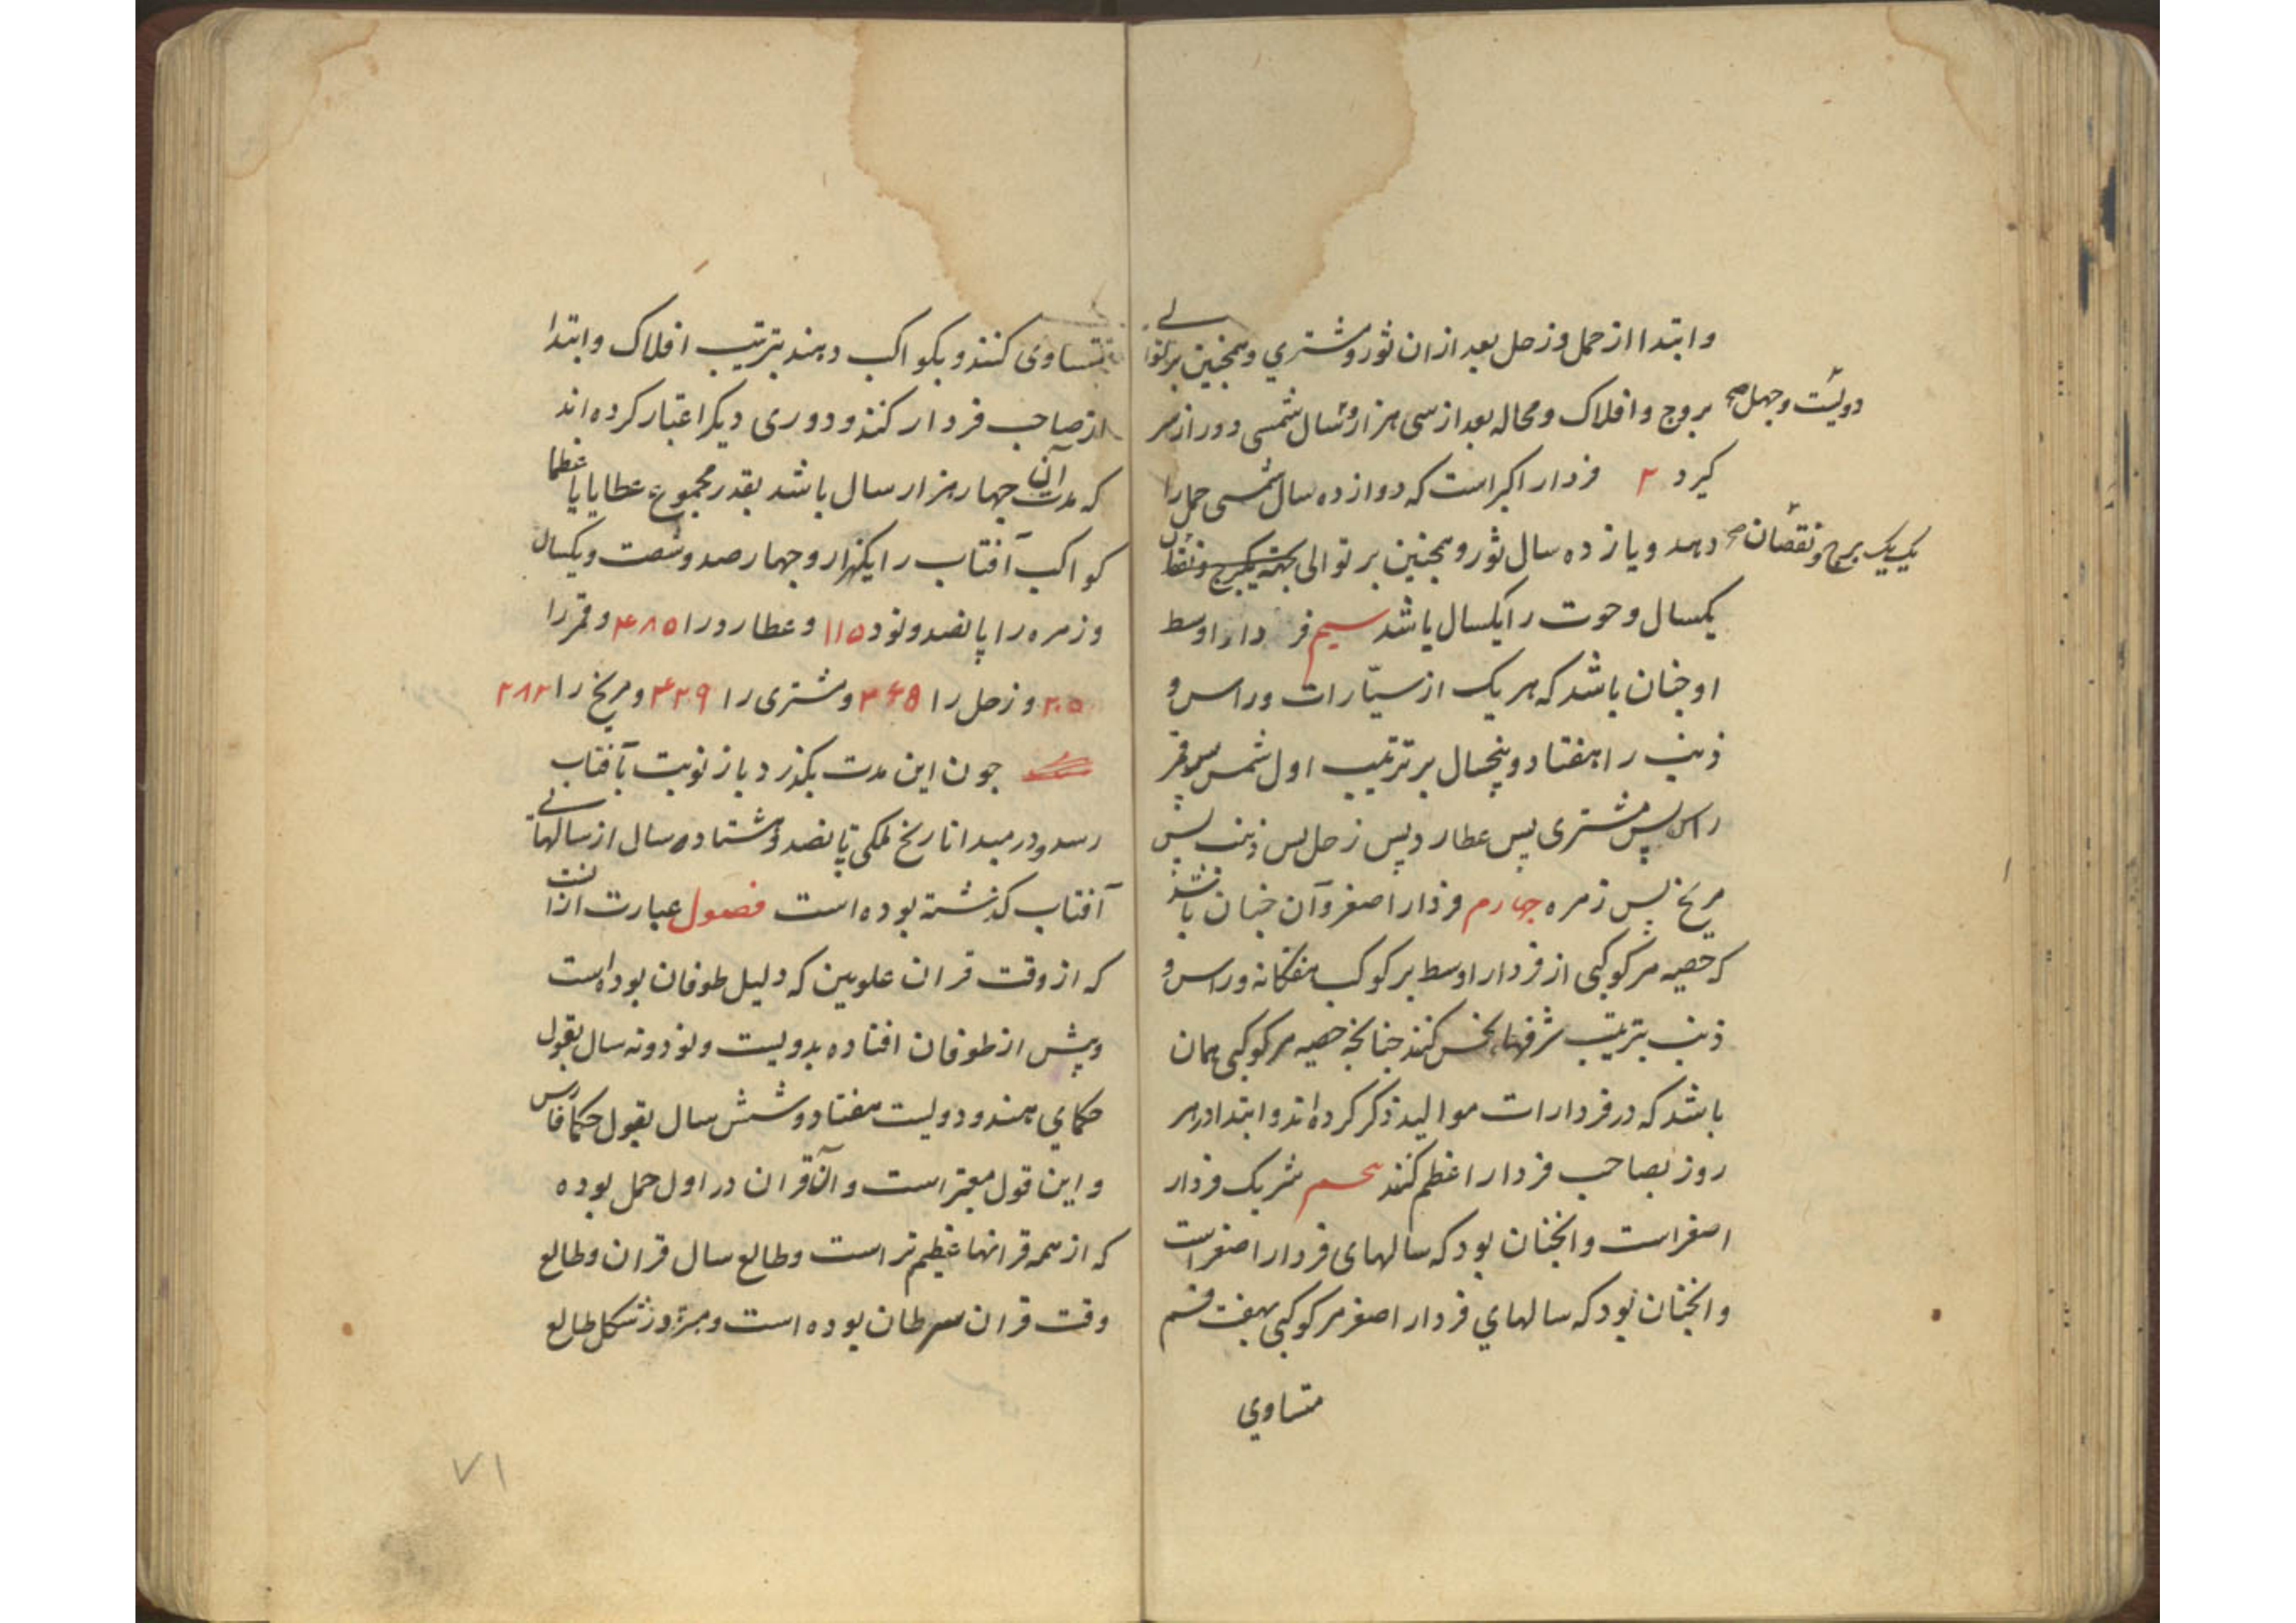 وابتدا از حمل وزحل بعد ازان ثور ومشتری وهمچنین بر توالی
بروج وافلاک ومحاله بعد ازسی هزار وسال شمسی دور از سر
دویست وچهل صح
کیرد ۲ فردار اکبر است که دوازده سال شمسی حمل را
دهد ویازده سال ثور وهمچنین بر توالی
یک یک برج ونقصان صح
یکسال وحوت را یکسال باشد سیم فردار اوسط
او چنان باشد که هر یک از سیّارات وراس و
ذنب را هفتاد وپنجسال بر ترتیب اول شمس پس قمر
راس پس مشتری پس عطارد پس زحل پس ذنب پس
مریخ پس زهره چهارم فردار اصغر وآن چنان باشد
که حصه هر کوکبی از فردار اوسط بر کوکب هفتکانه وراس و
ذنب بترتیب شرفها بخش کنند چنانچه حصه هر کوکبی همان
باشد که در فردارات موالید ذکر کرده اند وابتدا در هر
روز بصاحب فردار اعظم کنند شریک فردار
اصغر است وانچنان بود که سالهای فردار اصغر است
وانچنان بود که سالهای فردار اصغر هر کوکبی بهفت قسم
متساوی
متساوی کنند وبکواکب دهند بترتیب افلاک وابتدا
از صاحب فردار کنند ودوری دیکر اعتبار کرده اند
که مدت آن چهار هزار سال باشد بقدر مجموع عطایایا عظما
کواکب آفتاب را یکهزار وچهارصد وشصت ویکسال
وزهره را پانصد ونود ۱۱۵ وعطارد را ۴۸۵ وقمر را
۲۰۵ وزحل را ۲۶۵ ومشتری را ۴۲۹ ومریخ را ۲۸۲
چون این مدت بکذرد باز نوبت بآفتاب
رسد ودر مبدا تاریخ ملکی پانصد وهشتاد سال از سالهای
آفتاب کذشته بوده است فصول عبارت ازانست
که از وقت قران علویین که دلیل طوفان بوده است
وپیش از طوفان افتاده بدویست ونود ونه سال بقول
حکمای هند ودویست هفتاد وشش سال بقول حکما فارس
واین قول معتبر است وآن قران در اول حمل بوده
که از همه قرانها عظیم تر است وطالع سال قران وطالع
وقت قران سرطان بوده است طالع
۷۱